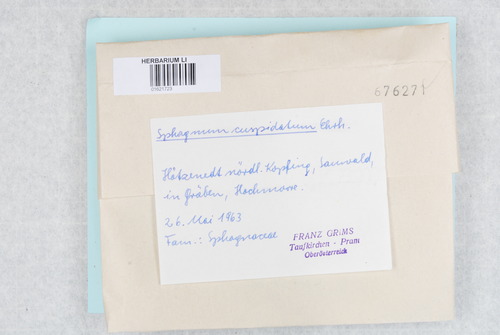 HERBARIUM LI
01621723
676271
Sphagnum cuspidatum Ehrh.
Hötzenedt nördl. Kopfing, Sauwald,
in Gräben, Hochmoor.
26. Mai 1963
Fam.: Sphagnaceae
FRANZ GRIMS
Taufkirchen - Pram
Oberösterreich